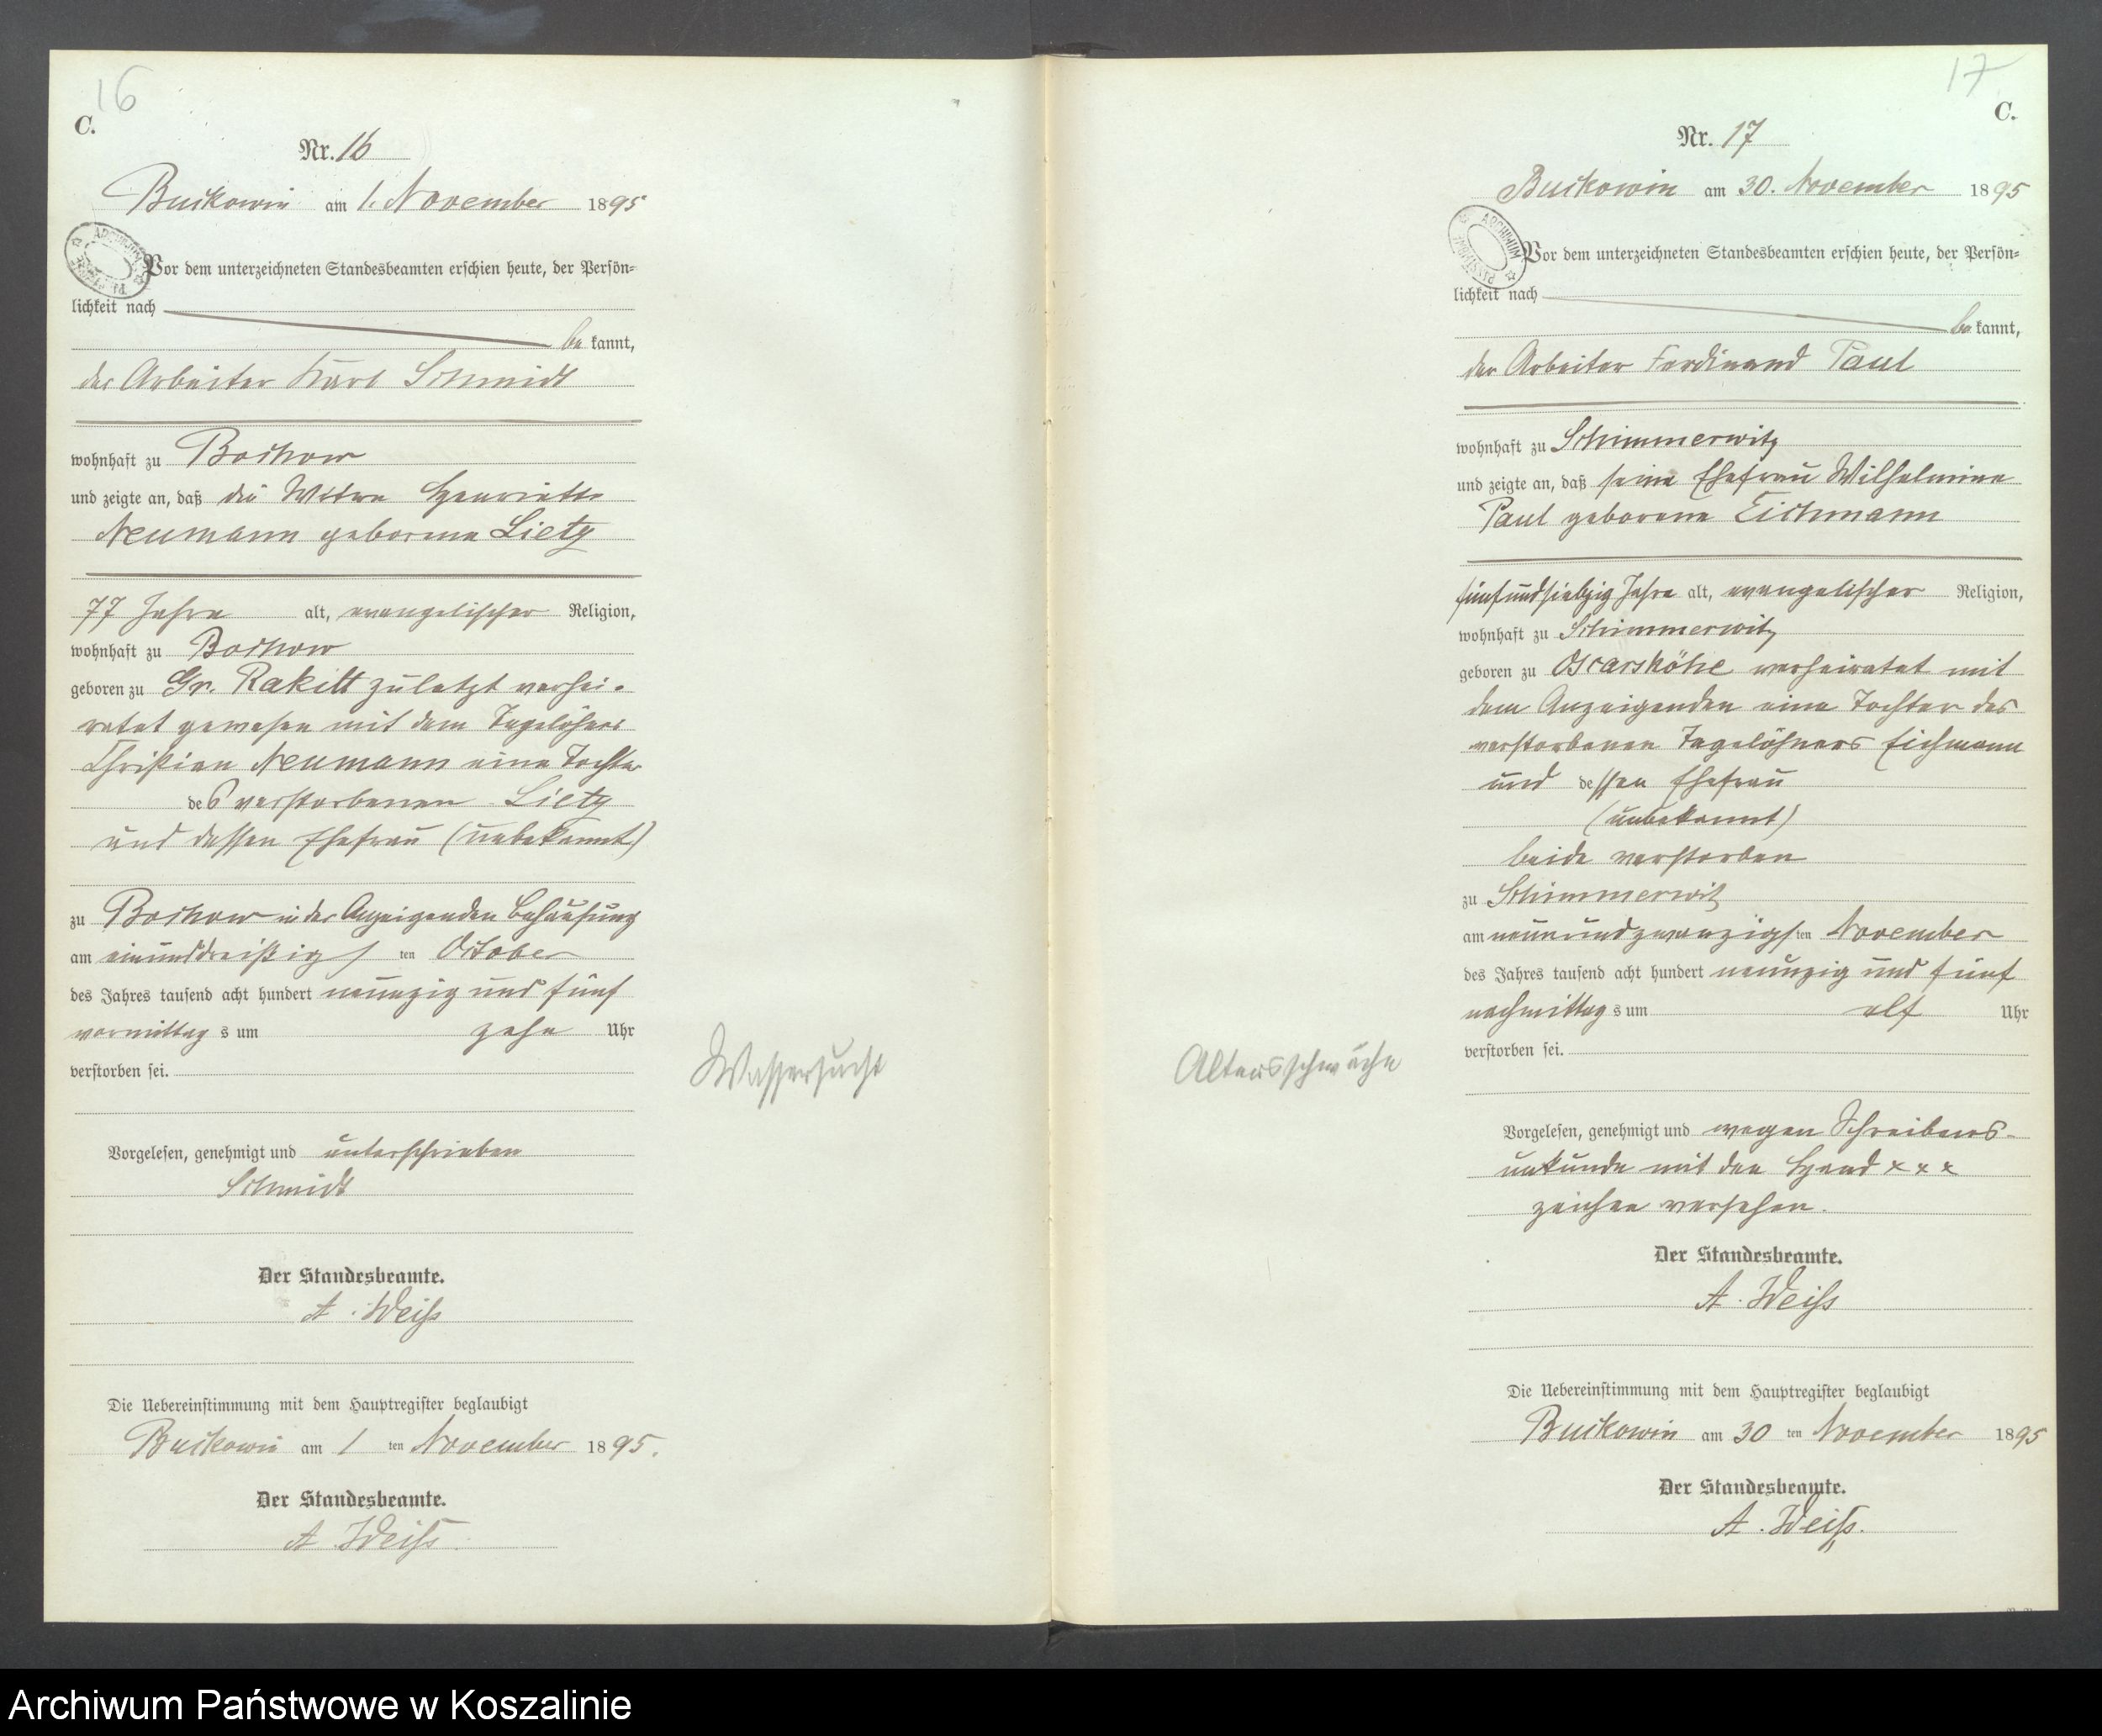 16
C.
Nr. 16
Buckowin am 1. November 1895
Vor dem unterzeichneten Standesbeamten erschien heute, der Persön-
lichkeit nach
be kannt,
der Arbeiter Karl Schmidt
wohnhaft zu Bochow
und zeigte an, daß die Witwe Henriette
Neumann geborene Lietz
77 Jahre alt, evangelischer Religion,
wohnhaft zu Bochow
geboren zu Gr. Rakitt zuletzt verhei-
ratet gewesen mit dem Tagelöhner
Christian Neumann eine Tochter
des verstorbenen Lietz
und dessen Ehefrau (unbekannt)
zu Bochow in der Anzeigenden Behausung
am einunddreißigsten October
des Jahres tausend acht hundert neunzig und fünf
vormittags um zehn Uhr
verstorben sei.
Wassersucht
Vorgelesen, genehmigt und unterschrieben
Schmidt
Der Standesbeamte.
A. Weiß
Die Uebereinstimmung mit dem Hauptregister beglaubigt
Buckowin am 1 ten November 1895.
Der Standesbeamte.
A. Weiß.
17
C.
Nr. 17
Buckowin am 30. November 1895
Vor dem unterzeichneten Standesbeamten erschien heute, der Persön-
lichkeit nach
be kannt,
der Arbeiter Ferdinand Paul
wohnhaft zu Schimmerwitz
und zeigte an, daß seine Ehefrau Wilhelmine
Paul geborene Eichmann
fünfundsiebzig Jahre alt, evangelischer Religion,
wohnhaft zu Schimmerwitz
geboren zu Oscarshöhe verheiratet mit
dem Anzeigenden eine Tochter des
verstorbenen Tagelöhners Eichmann
und dessen Ehefrau
(unbekannt)
beide verstorben
zu Schimmerwitz
am neunundzwanzigsten November
des Jahres tausend acht hundert neunzig und fünf
nachmittags um elf Uhr
verstorben sei.
Altersschwäche
Vorgelesen, genehmigt und wegen Schreibens-
unkunde mit den Hand x x x
zeichen versehen.
Der Standesbeamte.
A. Weiß
Die Uebereinstimmung mit dem Hauptregister beglaubigt
Buckowin am 30 ten November 1895
Der Standesbeamte.
A. Weiß.
Archiwum Państwowe w Koszalinie